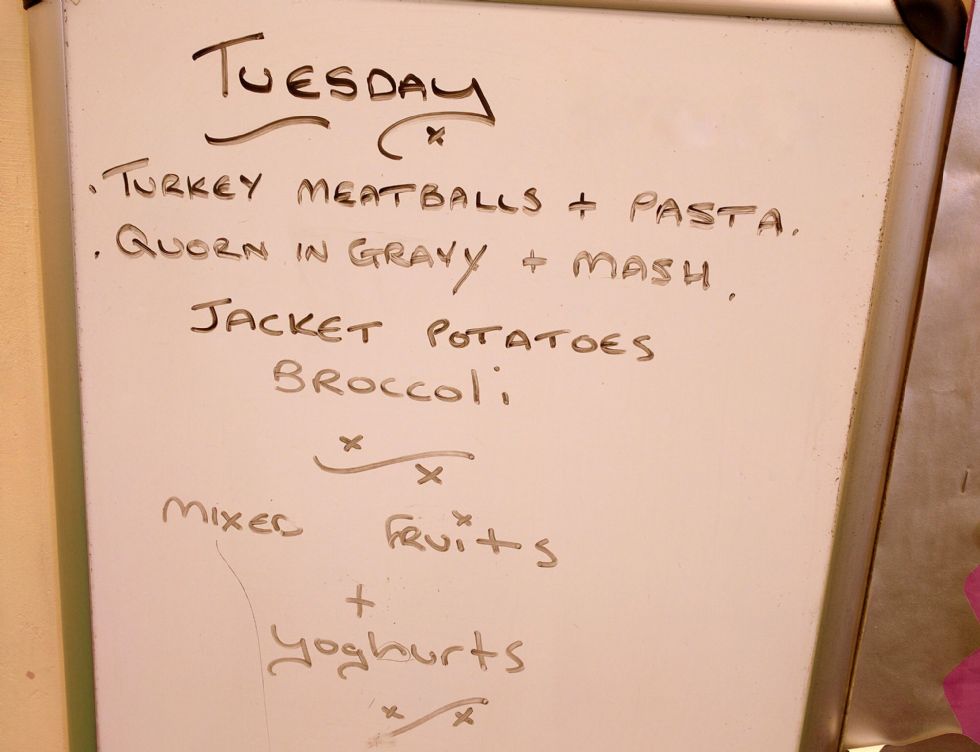 TUESDAY
. TURKEY MEATBALLS + PASTA.
. QUORN IN GRAVY + MASH.
JACKET POTATOES
BROCCOLi
MIXED FRUiTS
+
yoghurts